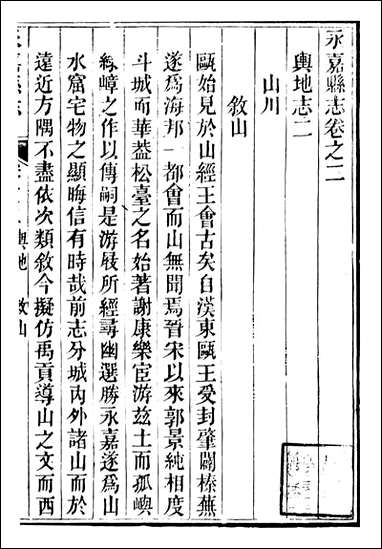 永嘉縣志卷之二
輿地志二
山川
敘山
甌始見於山經王會古矣自漢東甌王受封肇闢榛蕪
遂爲海邦一都會而山無聞焉晉宋以來郭景純相度
斗城而華葢松臺之名始著謝康樂宦游玆土而孤嶼
綠嶂之作以傳嗣是游屐所經尋幽選勝永嘉遂爲山
水窟宅物之顯晦信有時哉前志分城內外諸山而於
遠近方隅不盡依次類敘今擬仿禹貢導山之文而西
輿地 敘山